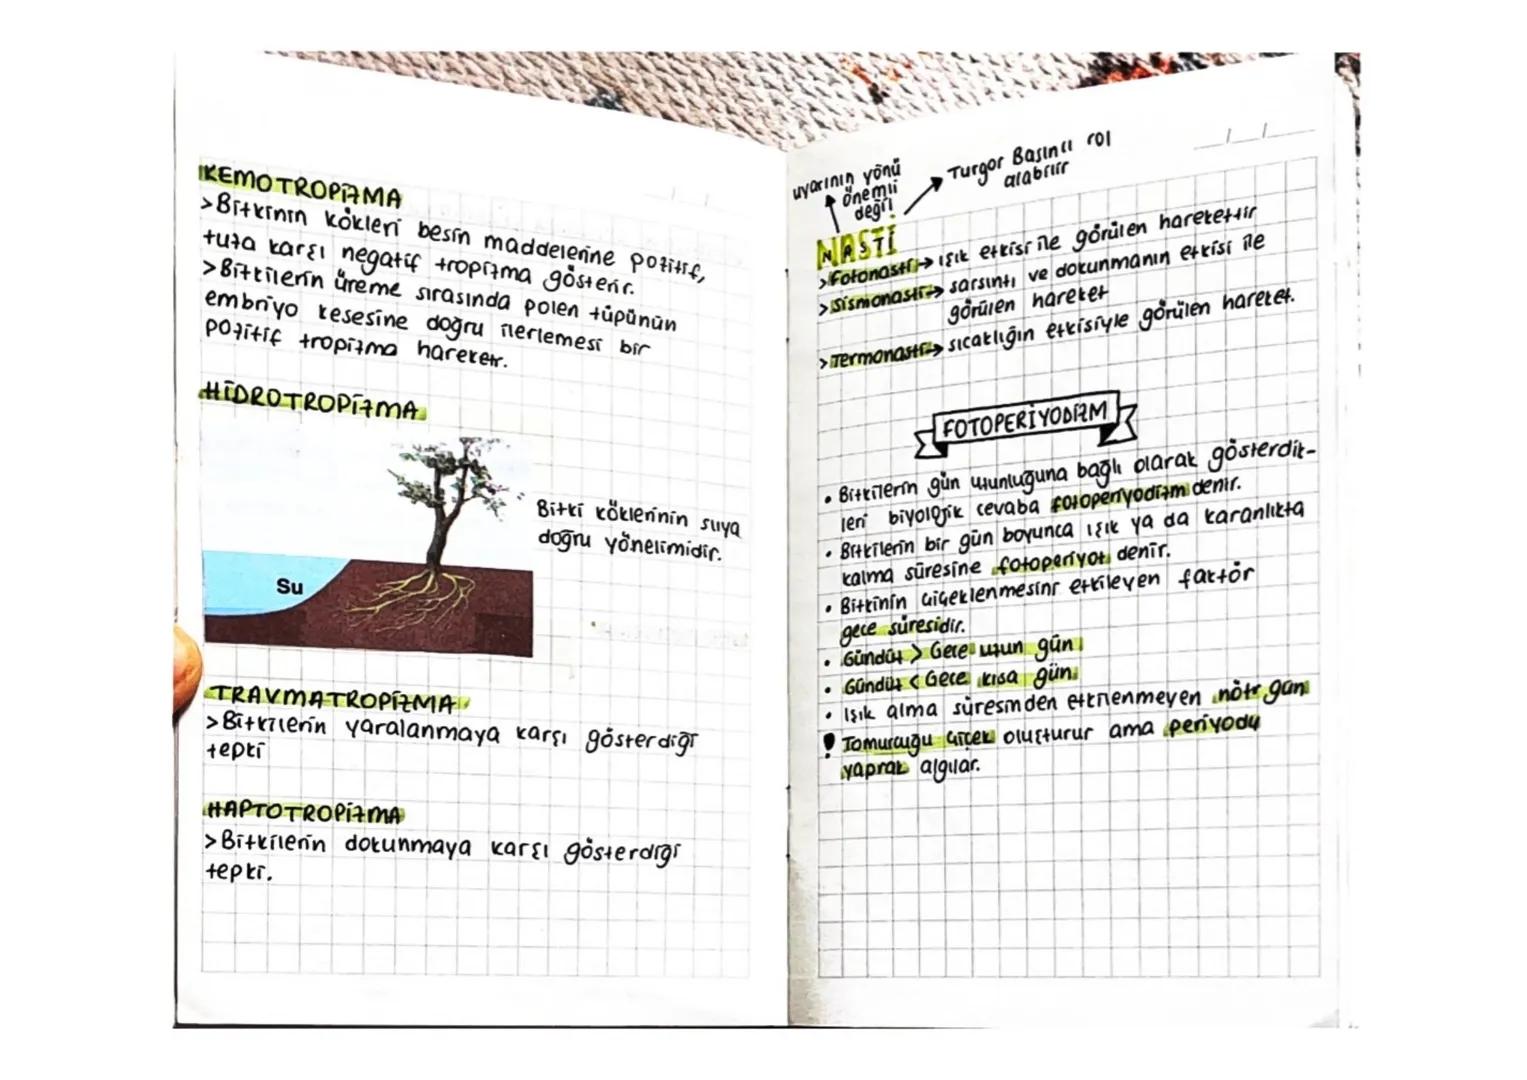 KEMOTROPİZMA
>Bitkinin kökleri besin maddelerine pozitif,
tuza karşı negatif tropizma gösterir.
>Bitkilerin üreme sırasında polen tüpünün
embriyo kesesine doğru ilerlemesi bir
pozitif tropizma hareketi.
HİDROTROPİZMA
Su
Bitki köklerinin suya
doğru yönelimidir.
TRAVMATROPİZMA
>Bitkilerin yaralanmaya karşı gösterdiği
tepki
HAPTOTROPİZMA
>Bitkilerin dokunmaya karşı gösterdiği
tepki.
uyarının yönü
önemli
değil
Turgor Basıncı rol
alabilir
NASTİ
>Fotonasti→ ışık etkisi ile görülen harekettir
>Sismonasti→ sarsıntı ve dokunmanın etkisi ile
görülen hareket
>Termonasti→ sıcaklığın etkisiyle görülen hareket.
FOTOPERİYODİZM
• Bitkilerin gün uzunluğuna bağlı olarak gösterdik-
leri biyolojik cevaba fotoperiyodizm denir.
• Bitkilerin bir gün boyunca ışık ya da karanlıkta
kalma süresine fotoperiyot denir.
• Bitkinin çiçeklenmesini etkileyen faktör
gece süresidir.
• Gündüz > Gece uzun gün
• Gündüz < Gece kısa gün
• Işık alma süresinden etkilenmeyen nötr gün
! Tomurcuğu çiçek oluşturur ama periyodu
yaprak algılar.